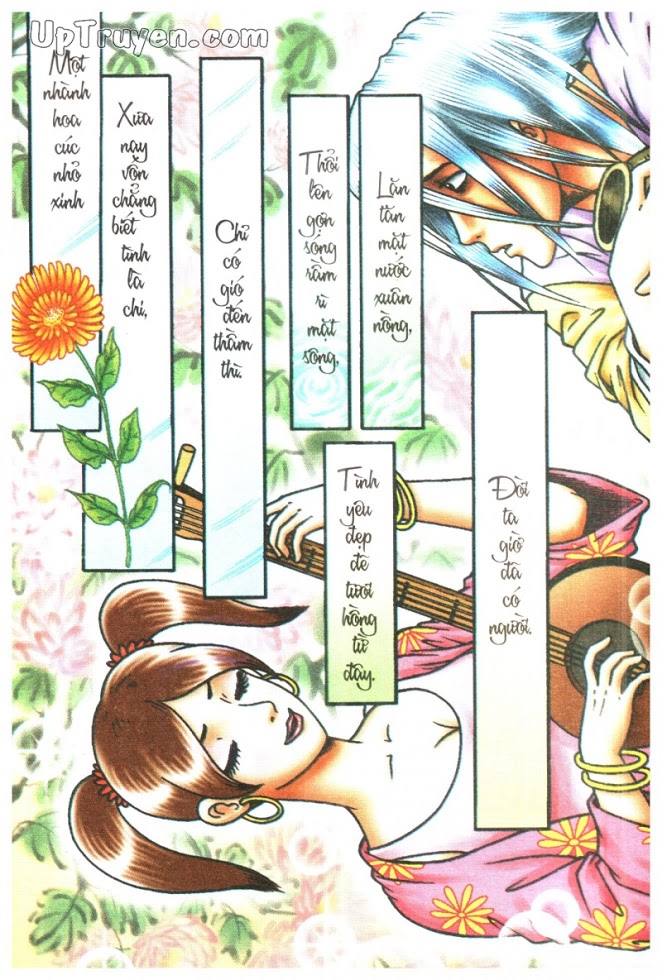 UpTruyen.com
Một nhành hoa cúc nhỏ xinh
Xưa nay vốn chẳng biết tình là chi,
Chỉ có gió đến thầm thì.
Thổi lên gợn sóng rầm rì mặt sông,
Lăn tăn mặt nước xuân nồng,
Tình yêu đẹp đẽ tươi hồng từ đây.
Đời ta giờ đã có người.